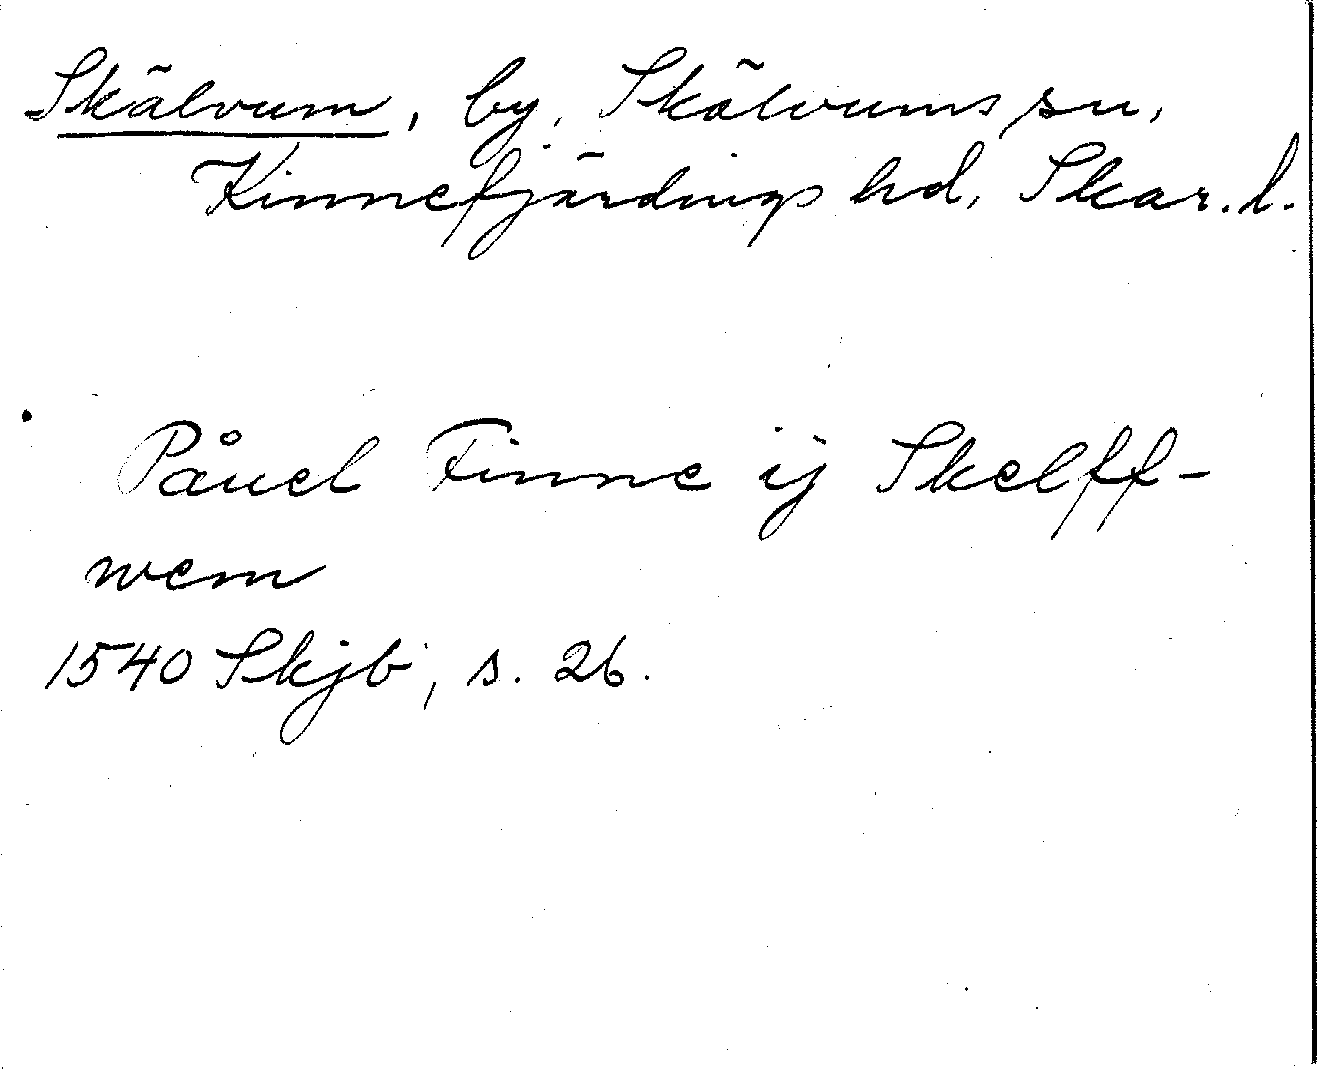 Skälvum, by, Skälvums sn,
Kinnefjärdings hd, Skar. l.
Påuel Finne ij Skelff-
wem
1540 Skjb, s. 26.